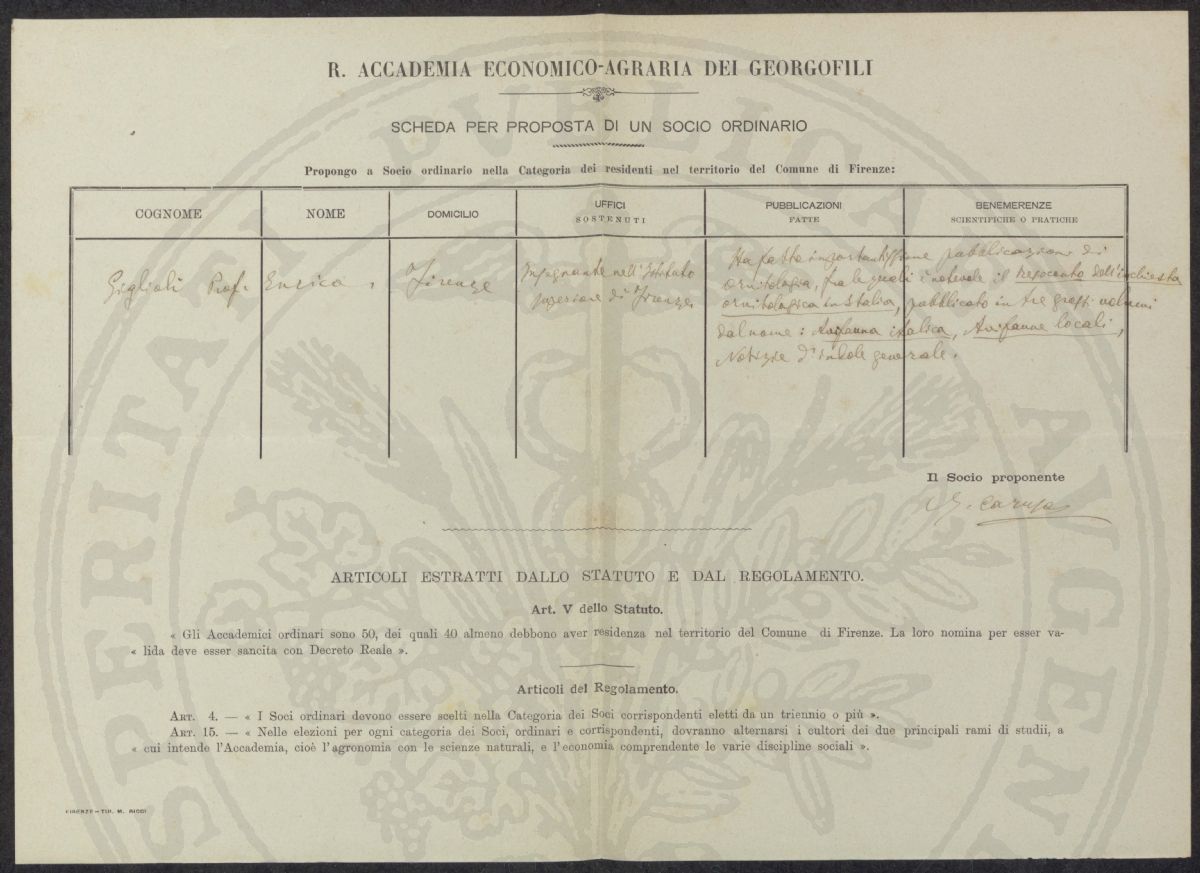 R. ACCADEMIA ECONOMICO-AGRARIA DEI GEORGOFILI
SCHEDA PER PROPOSTA DI UN SOCIO ORDINARIO
Propongo a Socio ordinario nella Categoria dei residenti nel territorio del Comune di Firenze:
COGNOME
NOME
DOMICILIO
UFFICI
SOSTENUTI
PUBBLICAZIONI
FATTE
BENEMERENZE
SCIENTIFICHE O PRATICHE
Giglioli Prof. Enrico,
Firenze
Insegnante nell'Istituto
superiore di Firenze
Ha fatto importantissime pubblicazioni di
ornitologia, fra le quali è notevole il Resoconto dell'inchiesta
ornitologica in Italia, pubblicato in tre grossi volumi
dal nome: Avifauna italica, Avifaune locali,
Notizie d'indole generale.
Il Socio proponente
G. Caruso
ARTICOLI ESTRATTI DALLO STATUTO E DAL REGOLAMENTO.
Art. V dello Statuto.
« Gli Accademici ordinari sono 50, dei quali 40 almeno debbono aver residenza nel territorio del Comune di Firenze. La loro nomina per esser va-
« lida deve esser sancita con Decreto Reale ».
Articoli del Regolamento.
ART. 4. — « I Soci ordinari devono essere scelti nella Categoria dei Soci corrispondenti eletti da un triennio o più ».
ART. 15. — « Nelle elezioni per ogni categoria dei Soci, ordinari e corrispondenti, dovranno alternarsi i cultori dei due principali rami di studii, a
« cui intende l'Accademia, cioè l'agronomia con le scienze naturali, e l'economia comprendente le varie discipline sociali ».
FIRENZE — TIP. M. RICCI
PROSPERITATI PVBLICAE AVGENDAE